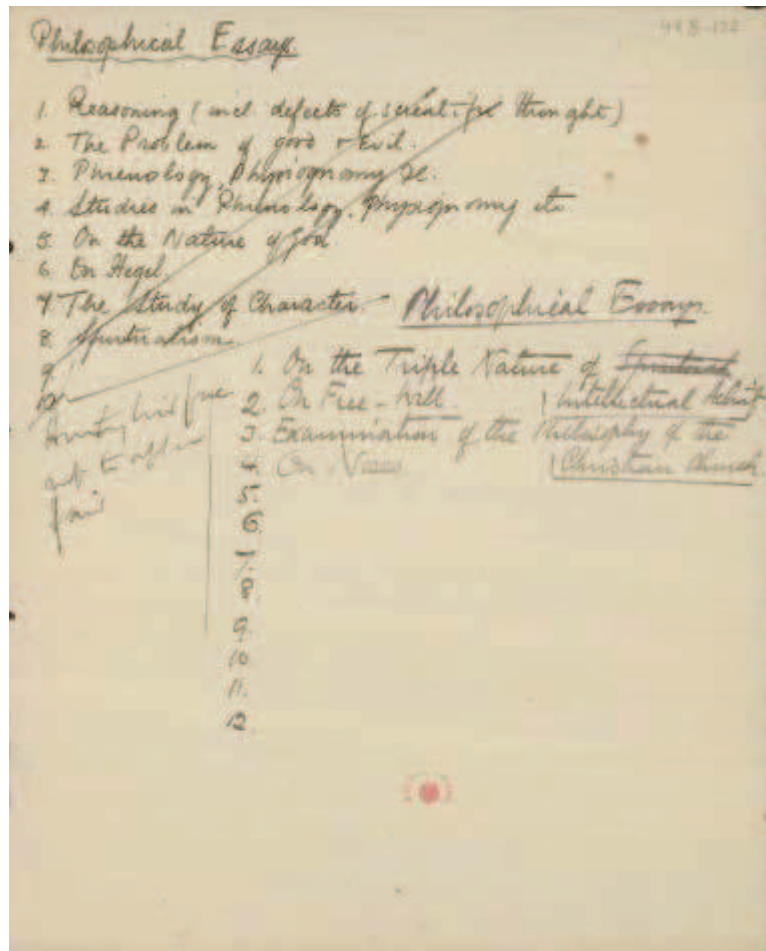 Philosophical Essays.
1. Reasoning (incl defects of scientific thought)
2 The Problem of good & Evil.
3. Phrenology, Physiognomy &c.
4. Studies in Phrenology, Physiognomy etc
5. On the Nature of God
6. On Hegel.
7 The Study of Character.
8. Spiritualism.
9
10
Philosophical Essays.
1. On the Triple Nature of Spiritual
Intellectual Activity
2. On Free-Will
3. Examination of the Philosophy of the
Christian Church
4. On
5.
6.
7.
8.
9.
10.
11.
12.